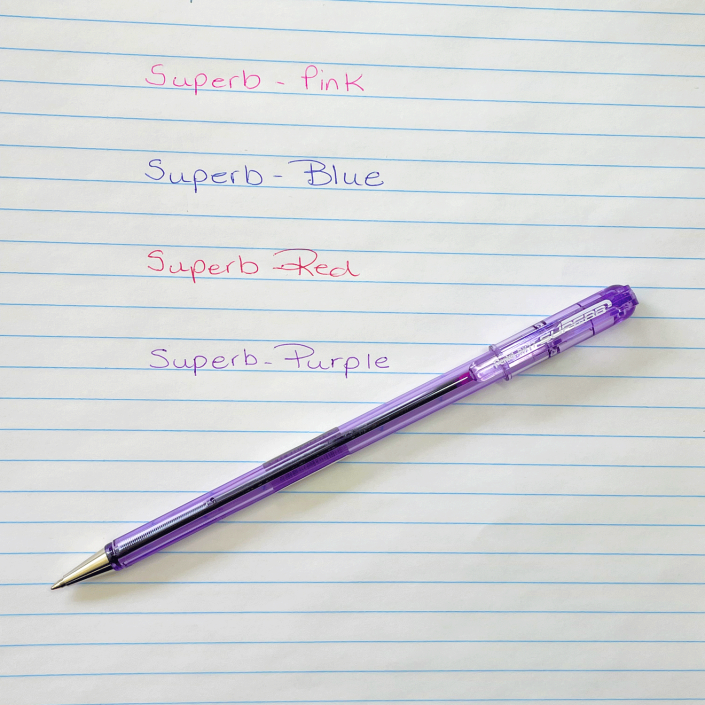 Superb - Pink
Superb - Blue
Superb Red
Superb - Purple
SUPERB